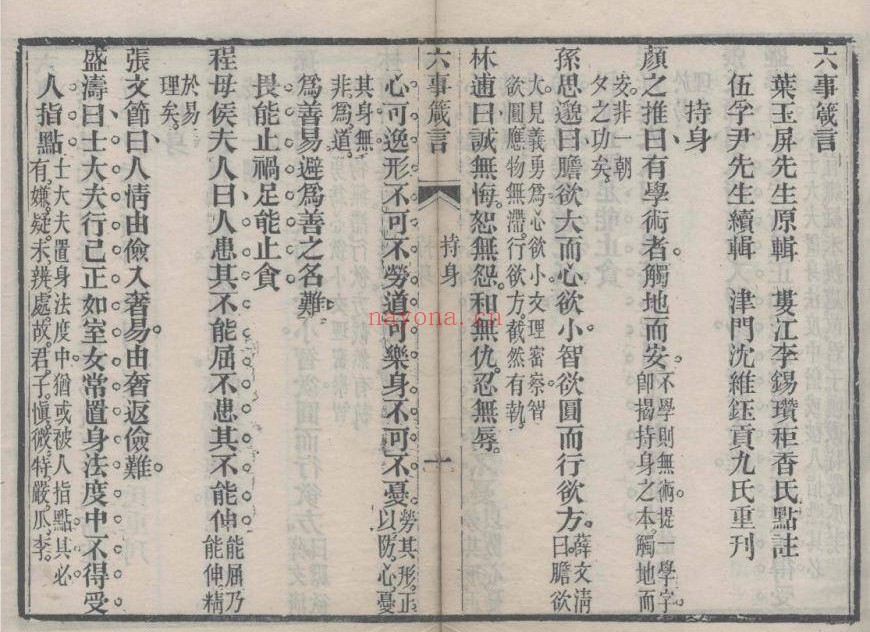 六事箴言
葉玉屏先生原輯　婁江李錫瓚秬香氏點註
伍孚尹先生續輯　津門沈維鈺貢九氏重刊
持身
顏之推曰有學術者觸地而安不學則無術提一學字
即揭持身之本觸地而
安非一朝
夕之功矣
孫思邈曰膽欲大而心欲小智欲圓而行欲方薛文淸
曰膽欲
大見義勇爲心欲小文理密察智
欲圓應物無滯行欲方截然有執
林逋曰誠無悔恕無怨和無仇忍無辱
六事箴言
持身
一
心可逸形不可不勞道可樂身不可不憂勞其形正
以防心憂
其身無
非爲道
爲善易避爲善之名難
畏能止禍足能止貪
程母侯夫人曰人患其不能屈不患其不能伸能屈乃
能伸精
於易
理矣
張文節曰人情由儉入奢易由奢返儉難
盛濤曰士大夫行己正如室女常置身法度中不得受
人指點士大夫置身法度中猶或被人指點其必
有嫌疑未辨處故君子愼微特嚴瓜李
nayona.cn